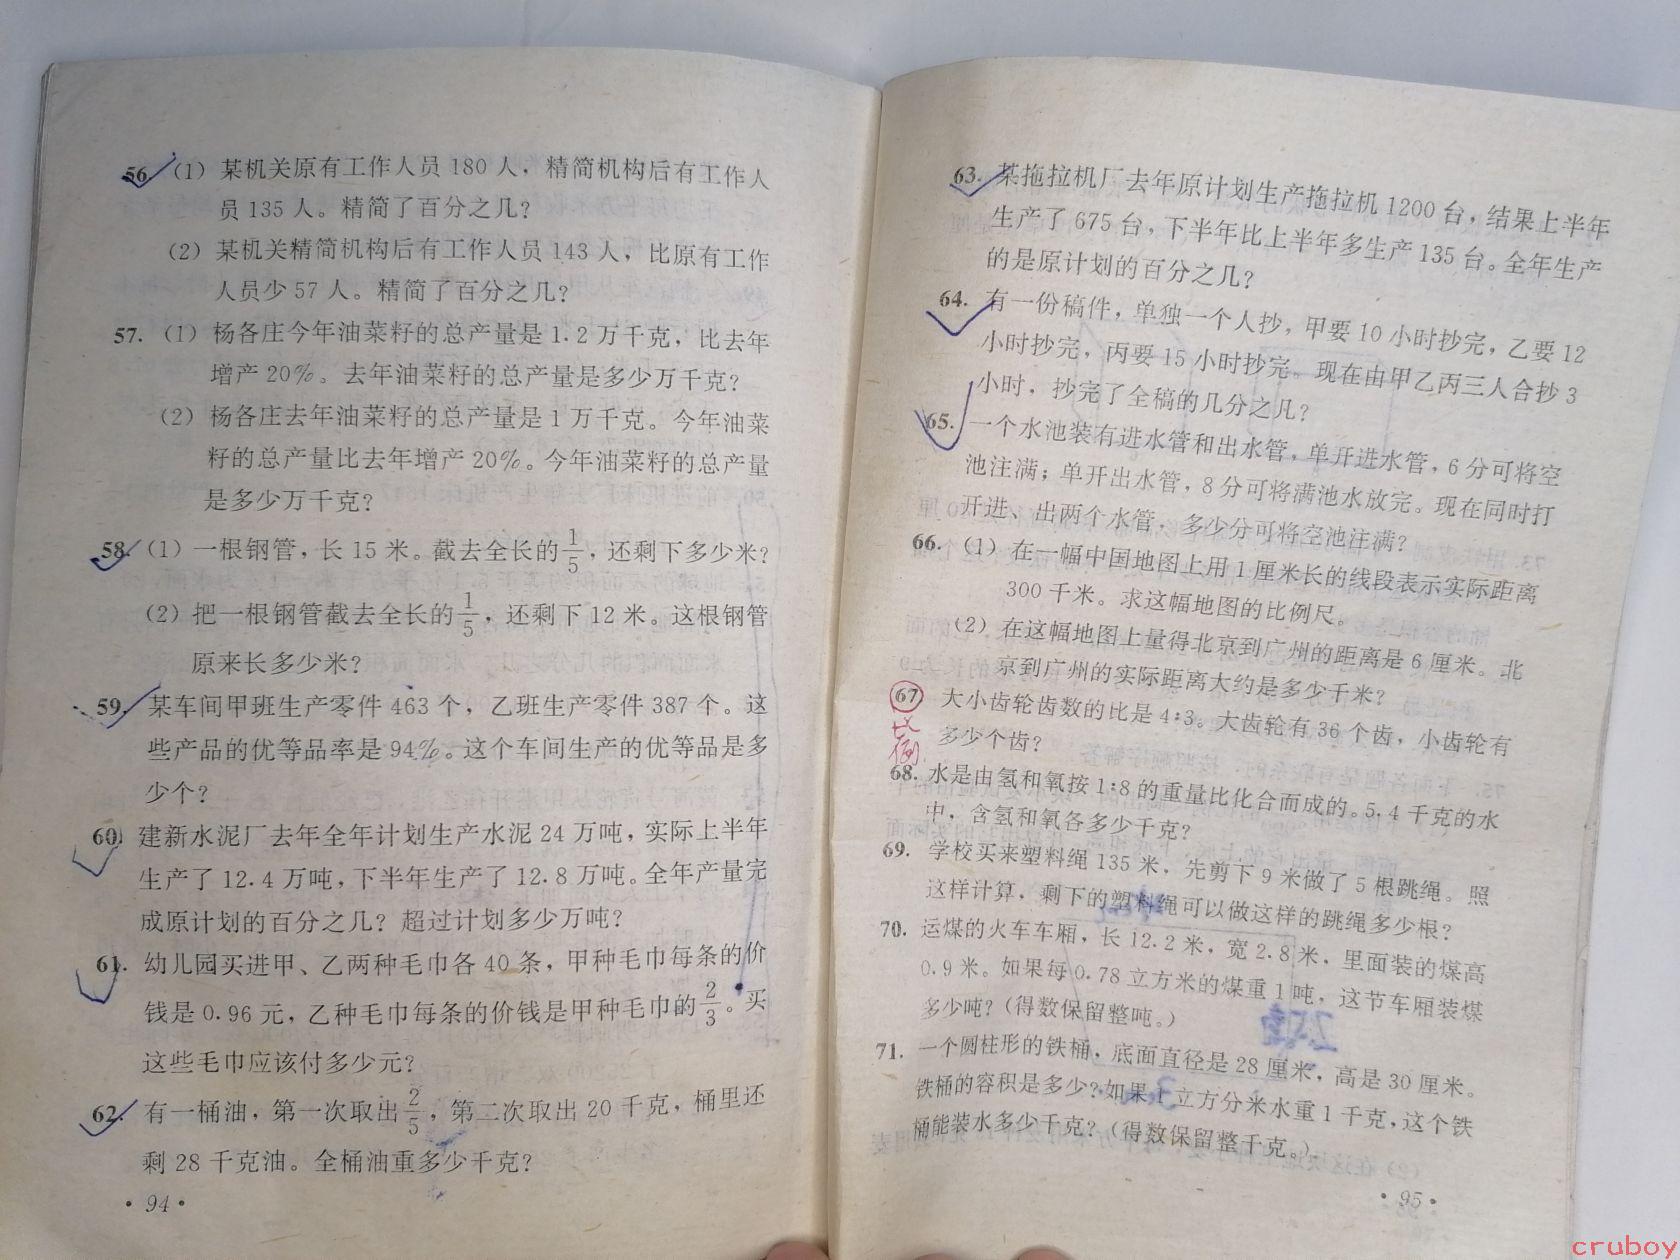 56. (1) 某机关原有工作人员 180 人，精简机构后有工作人
员 135 人。精简了百分之几？
(2) 某机关精简机构后有工作人员 143 人，比原有工作
人员少 57 人。精简了百分之几？
57. (1) 杨各庄今年油菜籽的总产量是 1.2 万千克，比去年
增产 20%。去年油菜籽的总产量是多少万千克？
(2) 杨各庄去年油菜籽的总产量是 1 万千克。今年油菜
籽的总产量比去年增产 20%。今年油菜籽的总产量
是多少万千克？
58. (1) 一根钢管，长 15 米。截去全长的 1/5，还剩下多少米？
(2) 把一根钢管截去全长的 1/5，还剩下 12 米。这根钢管
原来长多少米？
59. 某车间甲班生产零件 463 个，乙班生产零件 387 个。这
些产品的优等品率是 94%。这个车间生产的优等品是多
少个？
60. 建新水泥厂去年全年计划生产水泥 24 万吨，实际上半年
生产了 12.4 万吨，下半年生产了 12.8 万吨。全年产量完
成原计划的百分之几？超过计划多少万吨？
61. 幼儿园买进甲、乙两种毛巾各 40 条，甲种毛巾每条的价
钱是 0.96 元，乙种毛巾每条的价钱是甲种毛巾的 2/3。买
这些毛巾应该付多少元？
62. 有一桶油，第一次取出 2/5，第二次取出 20 千克，桶里还
剩 28 千克油。全桶油重多少千克？
· 94 ·
63. 某拖拉机厂去年原计划生产拖拉机 1200 台，结果上半年
生产了 675 台，下半年比上半年多生产 135 台。全年生产
的是原计划的百分之几？
64. 有一份稿件，单独一个人抄，甲要 10 小时抄完，乙要 12
小时抄完，丙要 15 小时抄完。现在由甲乙丙三人合抄 3
小时，抄完了全稿的几分之几？
65. 一个水池装有进水管和出水管，单开进水管，6 分可将空
池注满；单开出水管，8 分可将满池水放完。现在同时打
开进、出两个水管，多少分可将空池注满？
66. (1) 在一幅中国地图上用 1 厘米长的线段表示实际距离
300 千米。求这幅地图的比例尺。
(2) 在这幅地图上量得北京到广州的距离是 6 厘米。北
京到广州的实际距离大约是多少千米？
67 大小齿轮齿数的比是 4:3。大齿轮有 36 个齿，小齿轮有
多少个齿？
比例
68. 水是由氢和氧按 1:8 的重量比化合而成的。5.4 千克的水
中，含氢和氧各多少千克？
69. 学校买来塑料绳 135 米，先剪下 9 米做了 5 根跳绳。照
这样计算，剩下的塑料绳可以做这样的跳绳多少根？
70. 运煤的火车车厢，长 12.2 米，宽 2.8 米，里面装的煤高
0.9 米。如果每 0.78 立方米的煤重 1 吨，这节车厢装煤
多少吨？(得数保留整吨。)
71. 一个圆柱形的铁桶，底面直径是 28 厘米，高是 30 厘米。
铁桶的容积是多少？如果 1 立方分米水重 1 千克，这个铁
桶能装水多少千克？(得数保留整千克。)
· 95 ·
cruboy